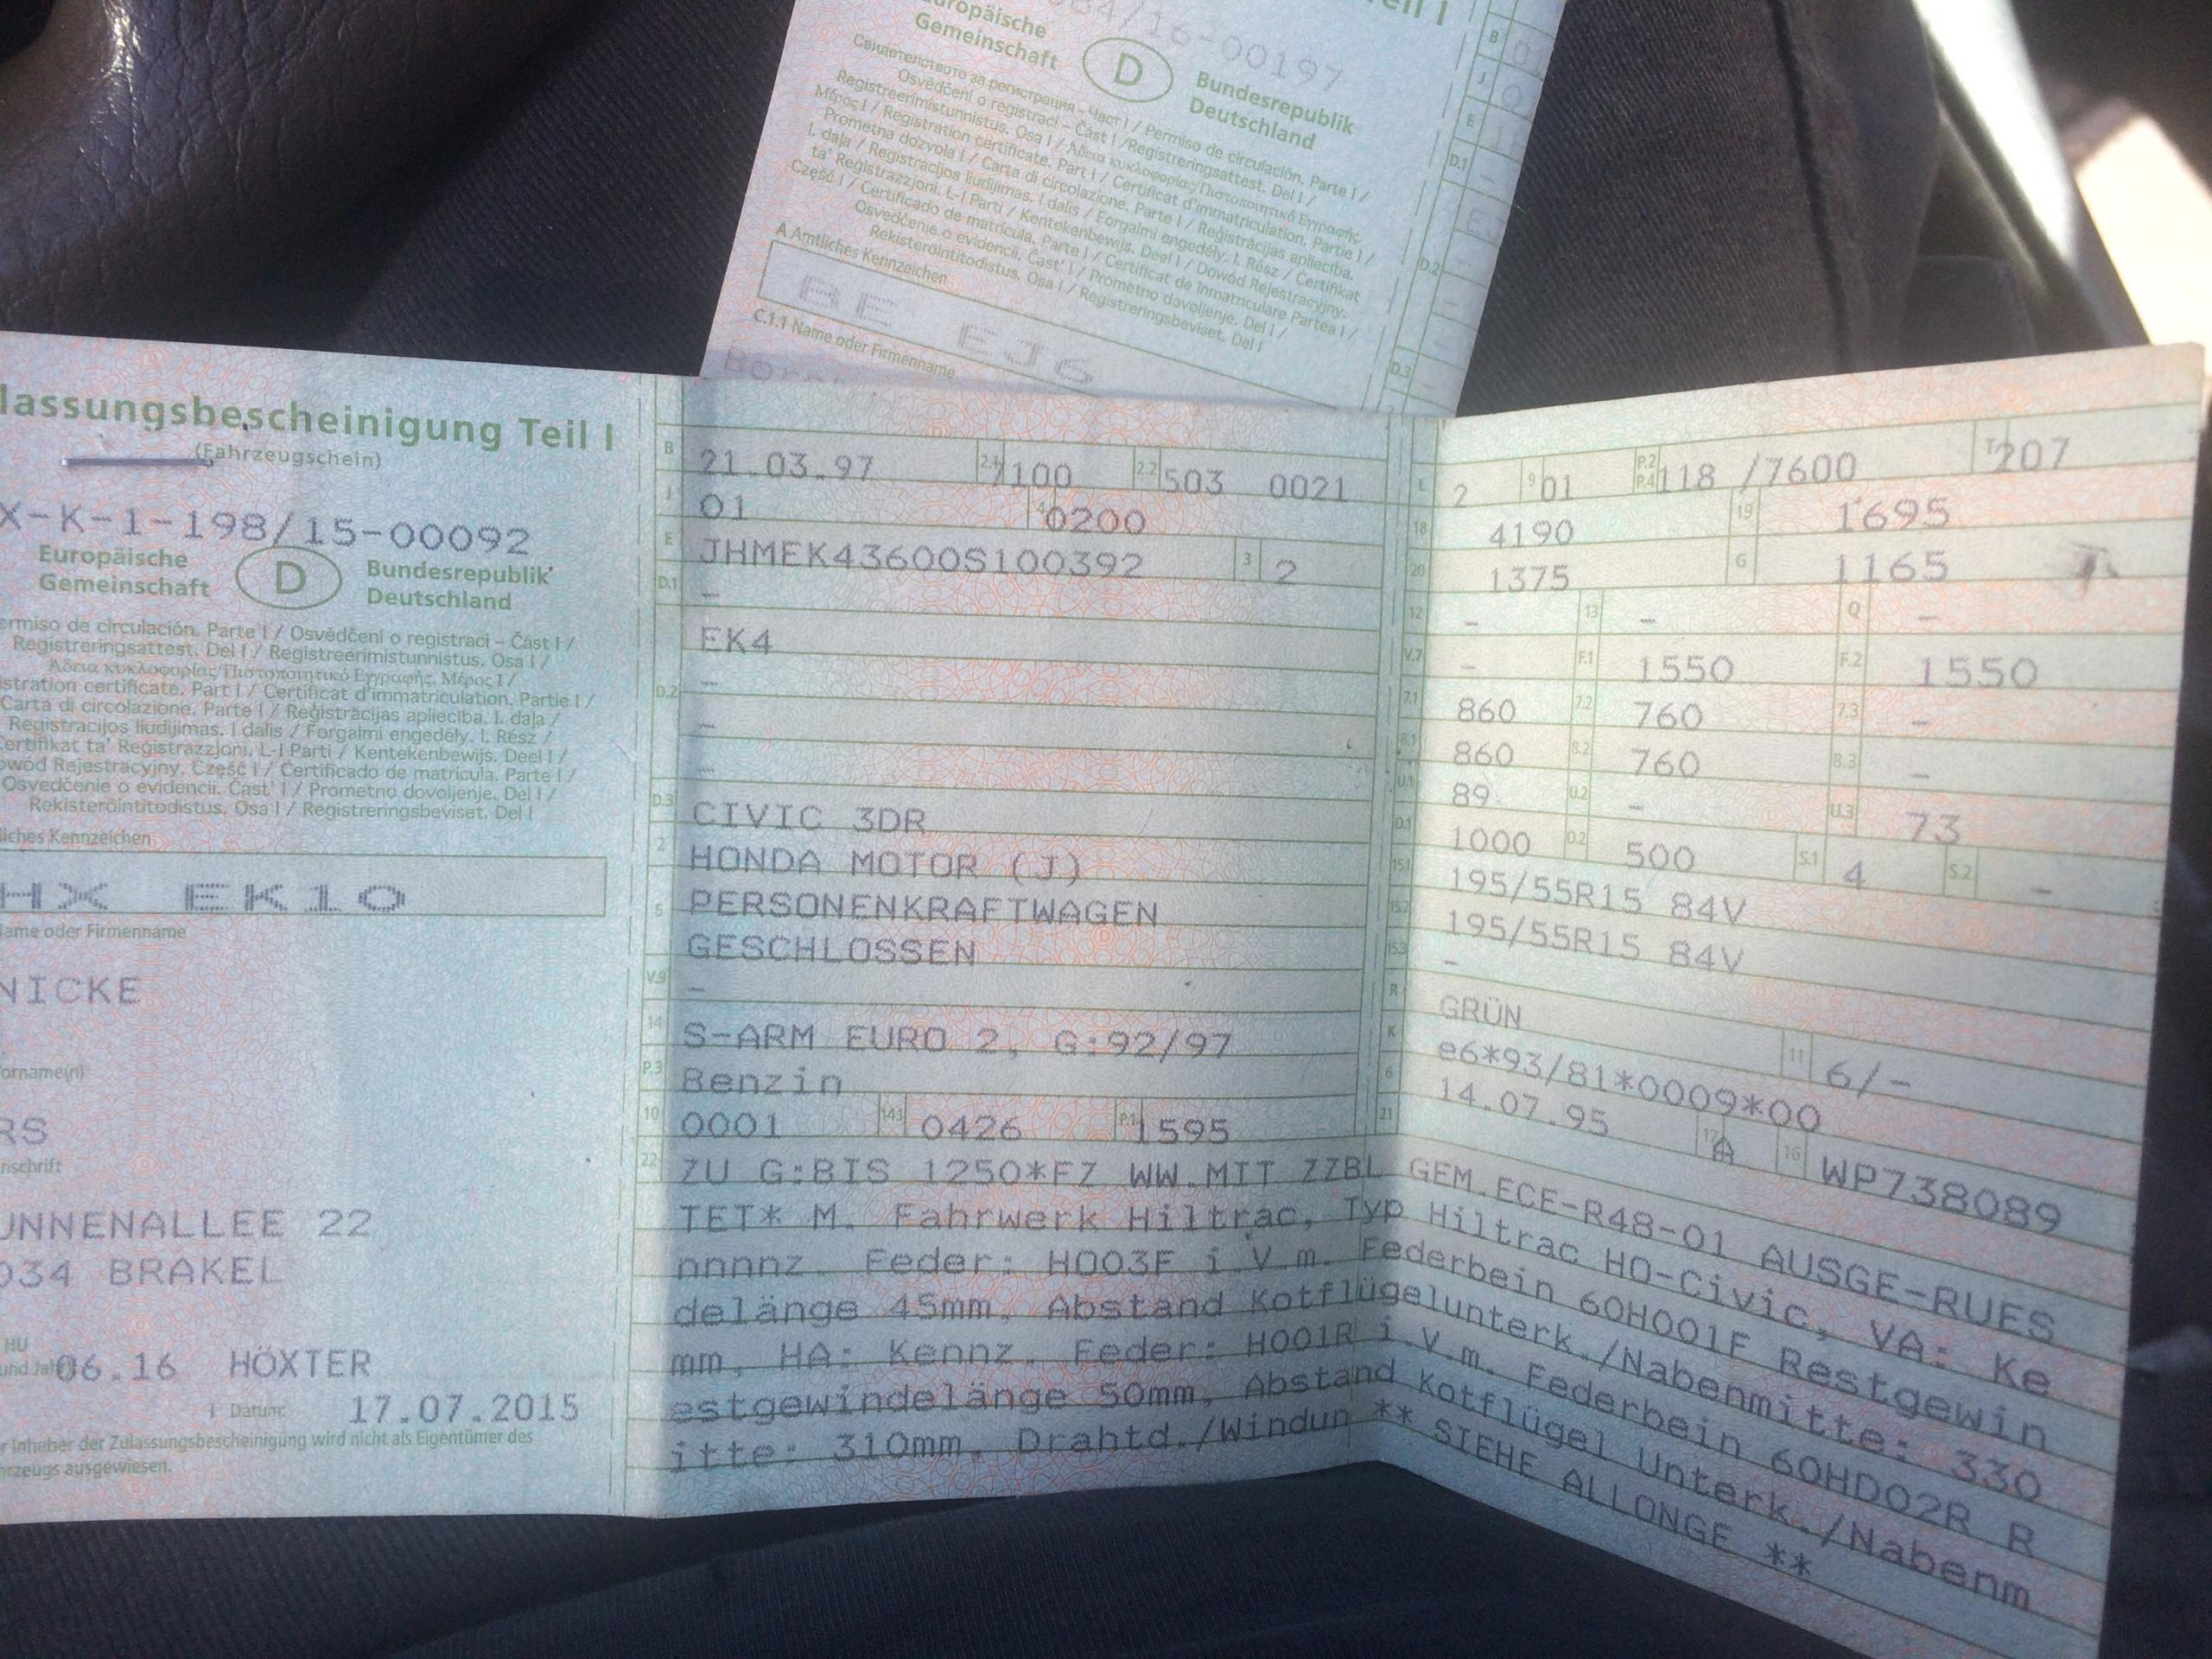 eil I
84/16-00197
Europäische
Gemeinschaft
D
Bundesrepublik
Deutschland
Свидетелството за регистрация - Част I / Permiso de circulación. Parte I /
Osvědčení o registraci - Část I / Registreringsattest. Del I /
Registreerimistunnistus. Osa I / Άδεια κυκλοφορίας/Πιστοποιητικό Εγγραφής.
Μέρος I / Registration certificate. Part I / Certificat d'immatriculation. Partie I /
Prometna dozvola I / Carta di circolazione. Parte I / Reģistrācijas apliecība.
I. daļa / Registracijos liudijimas. I dalis / Forgalmi engedély. I. Rész / Ċertifikat
ta' Reġistrazzjoni. L-I Parti / Kentekenbewijs. Deel I / Dowód Rejestracyjny.
Część I / Certificado de matrícula. Parte I / Certificat de înmatriculare Partea I /
Osvedčenie o evidencii. Časť I / Prometno dovoljenje. Del I /
Rekisteröintitodistus. Osa I / Registreringsbeviset. Del I
A Amtliches Kennzeichen
BE EJ6
C.1.1 Name oder Firmenname
B
J
E
D.1
D.2
D.3
lassungsbescheinigung Teil I
(Fahrzeugschein)
X-K-1-198/15-00092
Europäische
Gemeinschaft
D
Bundesrepublik
Deutschland
ermiso de circulación. Parte I / Osvědčení o registraci - Část I /
Registreringsattest. Del I / Registreerimistunnistus. Osa I /
Άδεια κυκλοφορίας/Πιστοποιητικό Εγγραφής. Μέρος I /
istration certificate. Part I / Certificat d'immatriculation. Partie I /
Carta di circolazione. Parte I / Reģistrācijas apliecība. I. daļa /
Registracijos liudijimas. I dalis / Forgalmi engedély. I. Rész /
ertifikat ta' Reġistrazzjoni. L-I Parti / Kentekenbewijs. Deel I /
owód Rejestracyjny. Część I / Certificado de matrícula. Parte I /
Osvedčenie o evidencii. Časť I / Prometno dovoljenje. Del I /
Rekisteröintitodistus. Osa I / Registreringsbeviset. Del I
liches Kennzeichen
HX EK10
ame oder Firmenname
NICKE
orname(n)
RS
nschrift
UNNENALLEE 22
034 BRAKEL
HU
06.16 HÖXTER
Datum: 17.07.2015
r Inhaber der Zulassungsbescheinigung wird nicht als Eigentümer des
hrzeugs ausgewiesen.
B 21.03.97 2.1 7100 2.2 503 0021
J 01 4 0200
E JHMEK43600S100392 3 2
D.1 -
EK4
D.2 -
-
-
D.3 CIVIC 3DR
2 HONDA MOTOR (J)
5 PERSONENKRAFTWAGEN
GESCHLOSSEN
V.9 -
14 S-ARM EURO 2, G:92/97
P.3 Benzin
10 0001 14.1 0426 P.1 1595
L 2 9 01 P.2 P.4 118 /7600 T 207
18 4190 19 1695
20 1375 G 1165
12 - 13 - Q -
V.7 - F.1 1550 F.2 1550
7.1 860 7.2 760 7.3 -
8.1 860 8.2 760 8.3 -
U.1 89 U.2 - U.3 73
O.1 1000 O.2 500 S.1 4 S.2 -
15.1 195/55R15 84V
15.2 195/55R15 84V
15.3 -
R GRÜN 11 6/-
K e6*93/81*0009*00
6 14.07.95 17 A 16 WP738089
21
22 ZU G:BIS 1250*FZ WW.MIT ZZBL GEM.ECE-R48-01 AUSGE-RUES
TET* M. Fahrwerk Hiltrac, Typ Hiltrac HO-Civic, VA: Ke
nnnnz. Feder: H003F i.V.m. Federbein 60H001F Restgewin
delänge 45mm, Abstand Kotflügelunterk./Nabenmitte: 330
mm, HA: Kennz. Feder: H001R i.V.m. Federbein 60HD02R R
estgewindelänge 50mm, Abstand Kotflügel Unterk./Nabenm
itte: 310mm, Drahtd./Windun ** SIEHE ALLONGE **